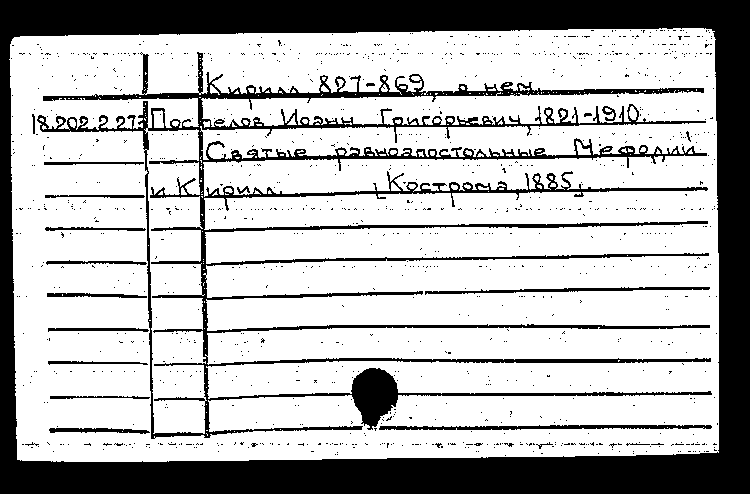 Кирилл, 827-869, о нем.
18.202.2.273 Поспелов, Иоанн Григорьевич, 1821-1910.
Святые равноапостольные Мефодий
и Кирилл. [Кострома, 1885].